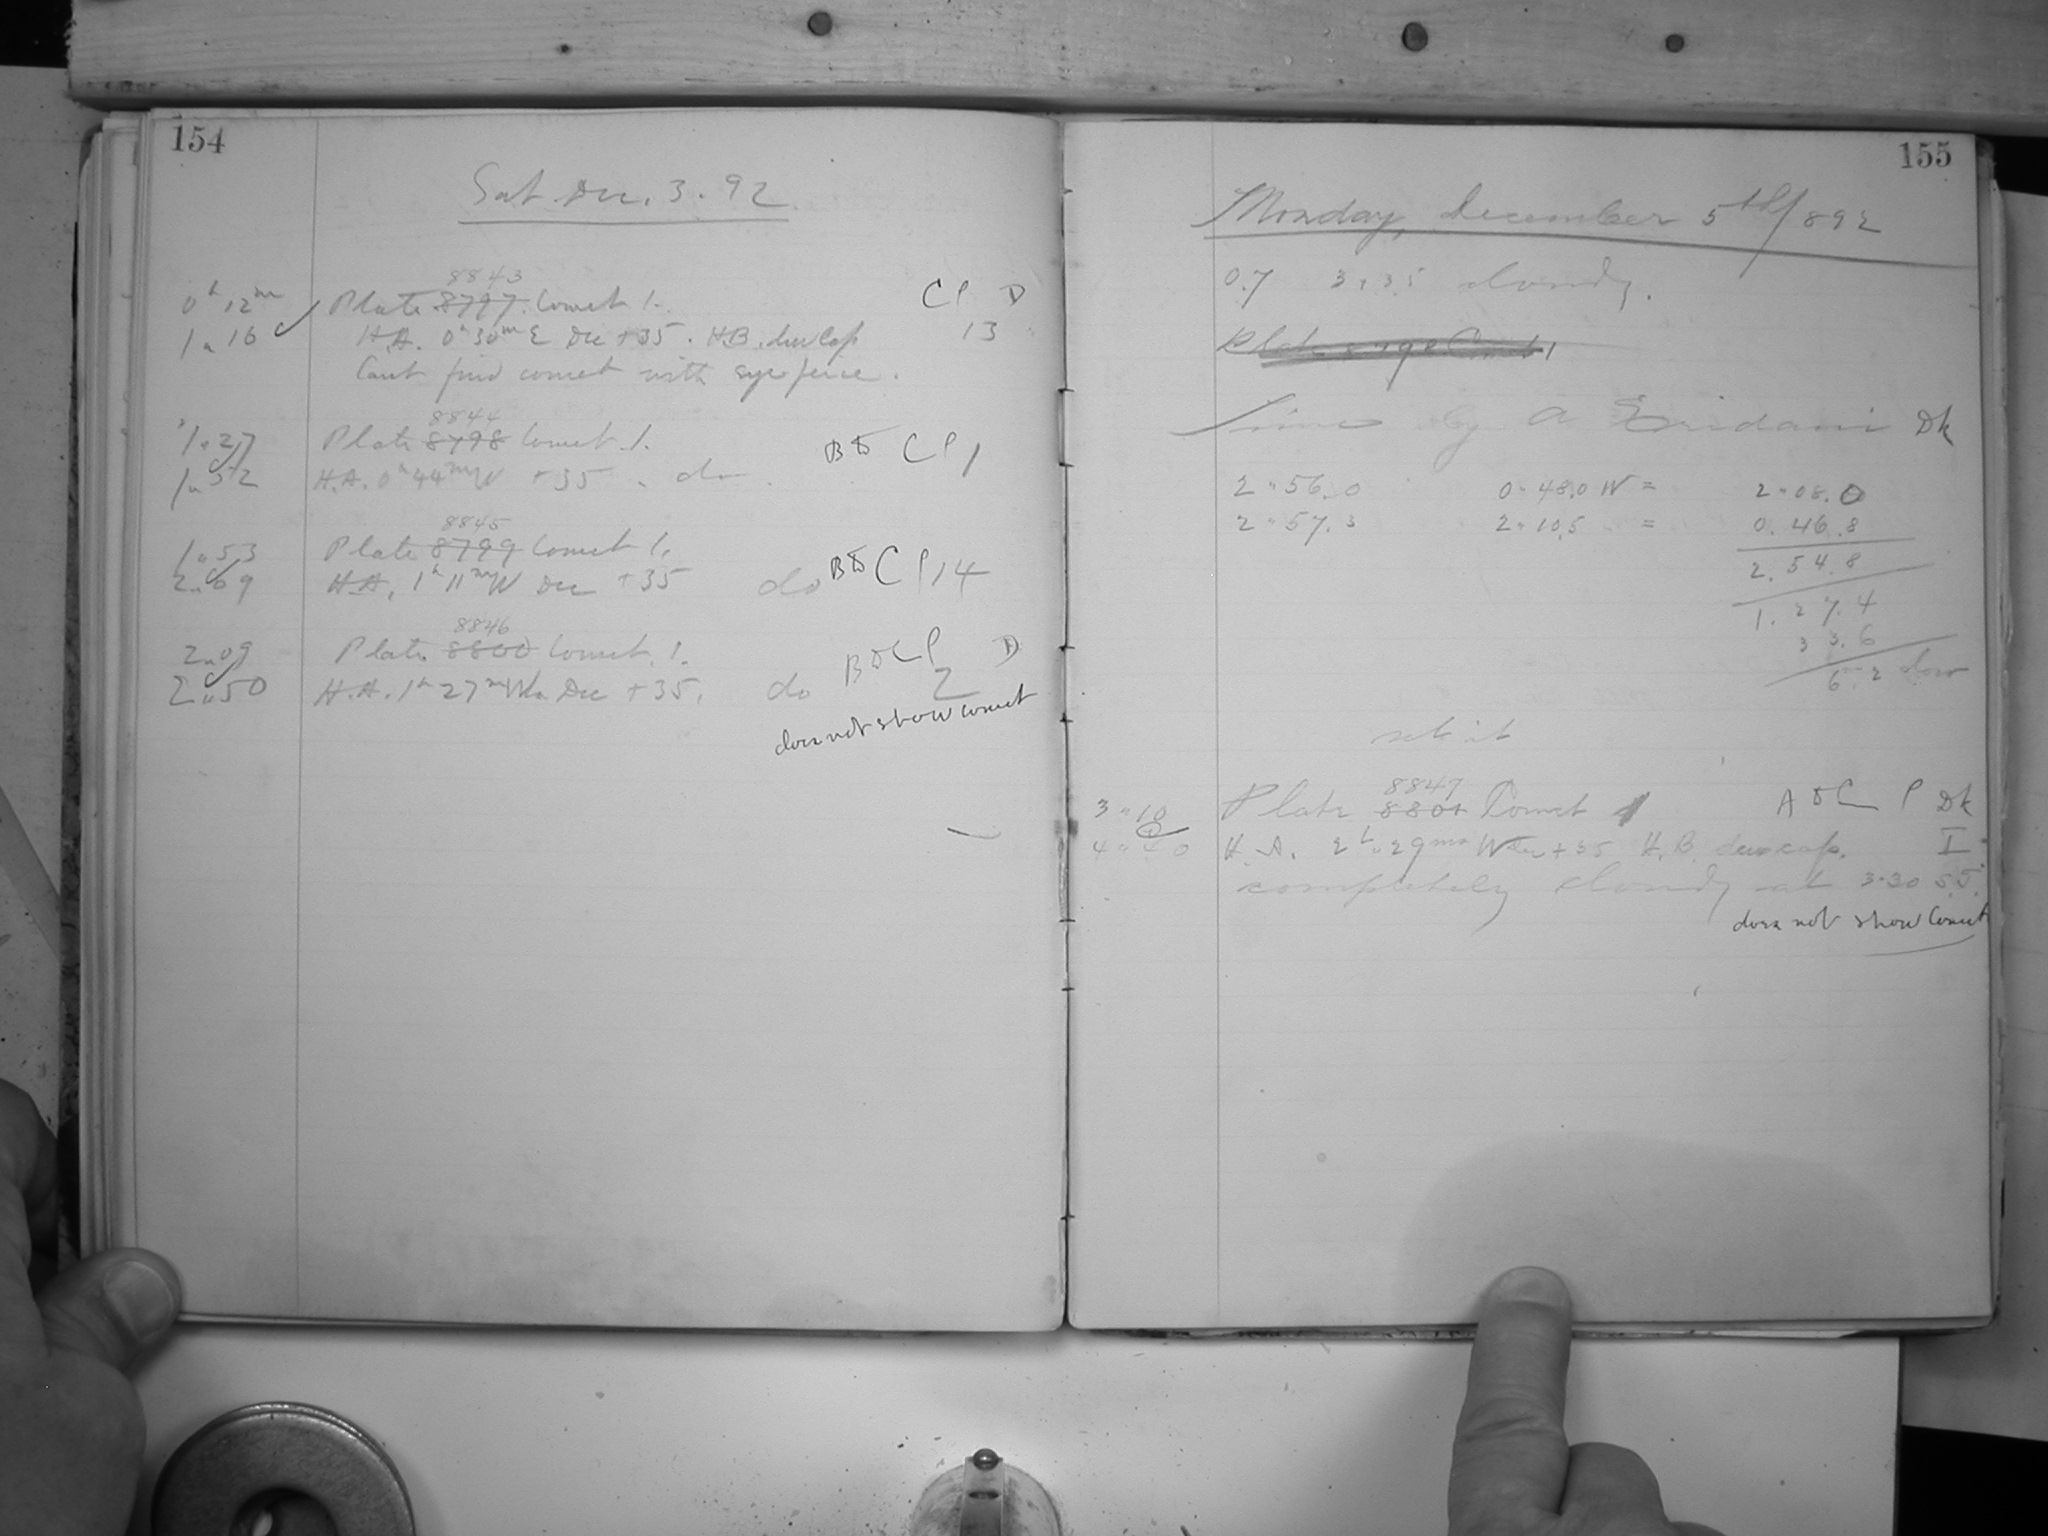 154
Sat Dec. 3. 92
8843
0h 12m Plate 8797 Comet 1. C P D
1 " 16 H.A. 0h 30m E Dec +35. H.B. dew cap 13
Cant find comet with eyepiece.
8844
1 " 27 Plate 8798 Comet 1. C P 1
1 " 52 H.A. 0h 44m W +35 . do
8845
1 " 53 Plate 8799 Comet 1.
2 " 09 H.A. 1h 11m W Dec +35 do C P 14
8846
2 " 09 Plate 8800 Comet 1. C P D
2 " 50 H.A. 1h 27m W Dec +35. do 2
does not show comet
155
Monday, December 5th/892
0.7 cloudy.
Plate Comet 1
Time by Eridani Dk
2 " 56.0 0 " 48.0 W = 2 " 08.0
2 " 57.3 2 " 10.5 = 0. 46.8
2. 54.8
1. 27.4
33.6
6.2 slow
set it
8847
3 " 10 Plate 8801 Comet 1 A C P Dk
4 " 40 H.A. 2h " 29m W Dec +35 H.B. dew cap. I
completely cloudy at 3.30 S.T.
does not show Comet